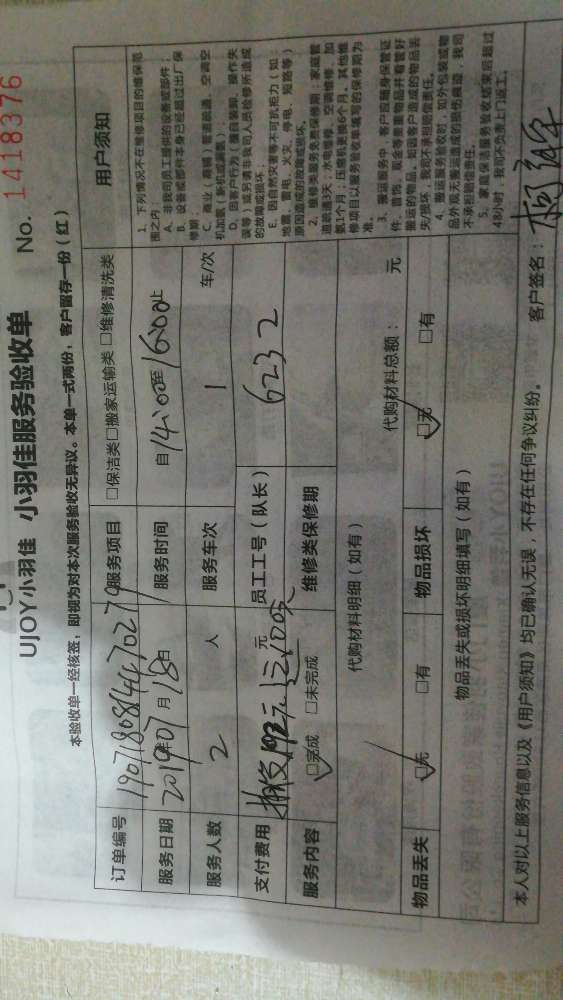 UJOY小羽佳 小羽佳服务验收单 No. 1418376
本验收单一经核签，即视为对本次服务验收无异议。本单一式两份，客户留存一份（红）
订单编号 服务项目 □保洁类□搬家运输类 □维修清洗类
服务日期 2019年07月18日 服务时间 自14:00至16:00止
服务人数 2 人 服务车次 1 车/次
支付费用 元 员工工号（队长） 6232
服务内容 □完成 □未完成 维修类保修期
代购材料明细（如有） 代购材料总额： 元
物品丢失 □无 □有 物品损坏 □无 □有
物品丢失或损坏明细填写（如有）
用户须知
1、下列情况不在维修项目的维保范
围之内：
A、非我司员工提供的设备或部件；
B、设备或部件本身已经超过出厂保
修期；
C、商业（商铺）管道疏通、空调空
机加氨（新机或漏氨）；
D、因客户行为（擅自装卸、操作失
误等）或另请非我司人员检修所造成
的故障或损坏；
E、因自然灾害等不可抗拒力（如：
地震、雷电、火灾、停电、短路等）
原因造成的故障或损坏。
2、维修类服务免费保修期：家庭管
道疏通3天，水电维修、空调维修、加
氨1个月；压缩机更换6个月。其他维
修项目以服务验收单填写的保修期为
准。
3、搬运服务中，客户应随身保管证
件、首饰、现金等贵重物品并看管好
搬运的物品，如因客户造成的物品丢
失/损坏，我司不承担赔偿责任。
4、搬运服务验收时，如外包装或物
品外观无搬运造成的损伤痕迹，我司
不承担赔偿责任。
5、家庭保洁服务验收结束后超过
48小时，我司不负责上门返工。
本人对以上服务信息以及《用户须知》均已确认无误，不存在任何争议纠纷。 客户签名：